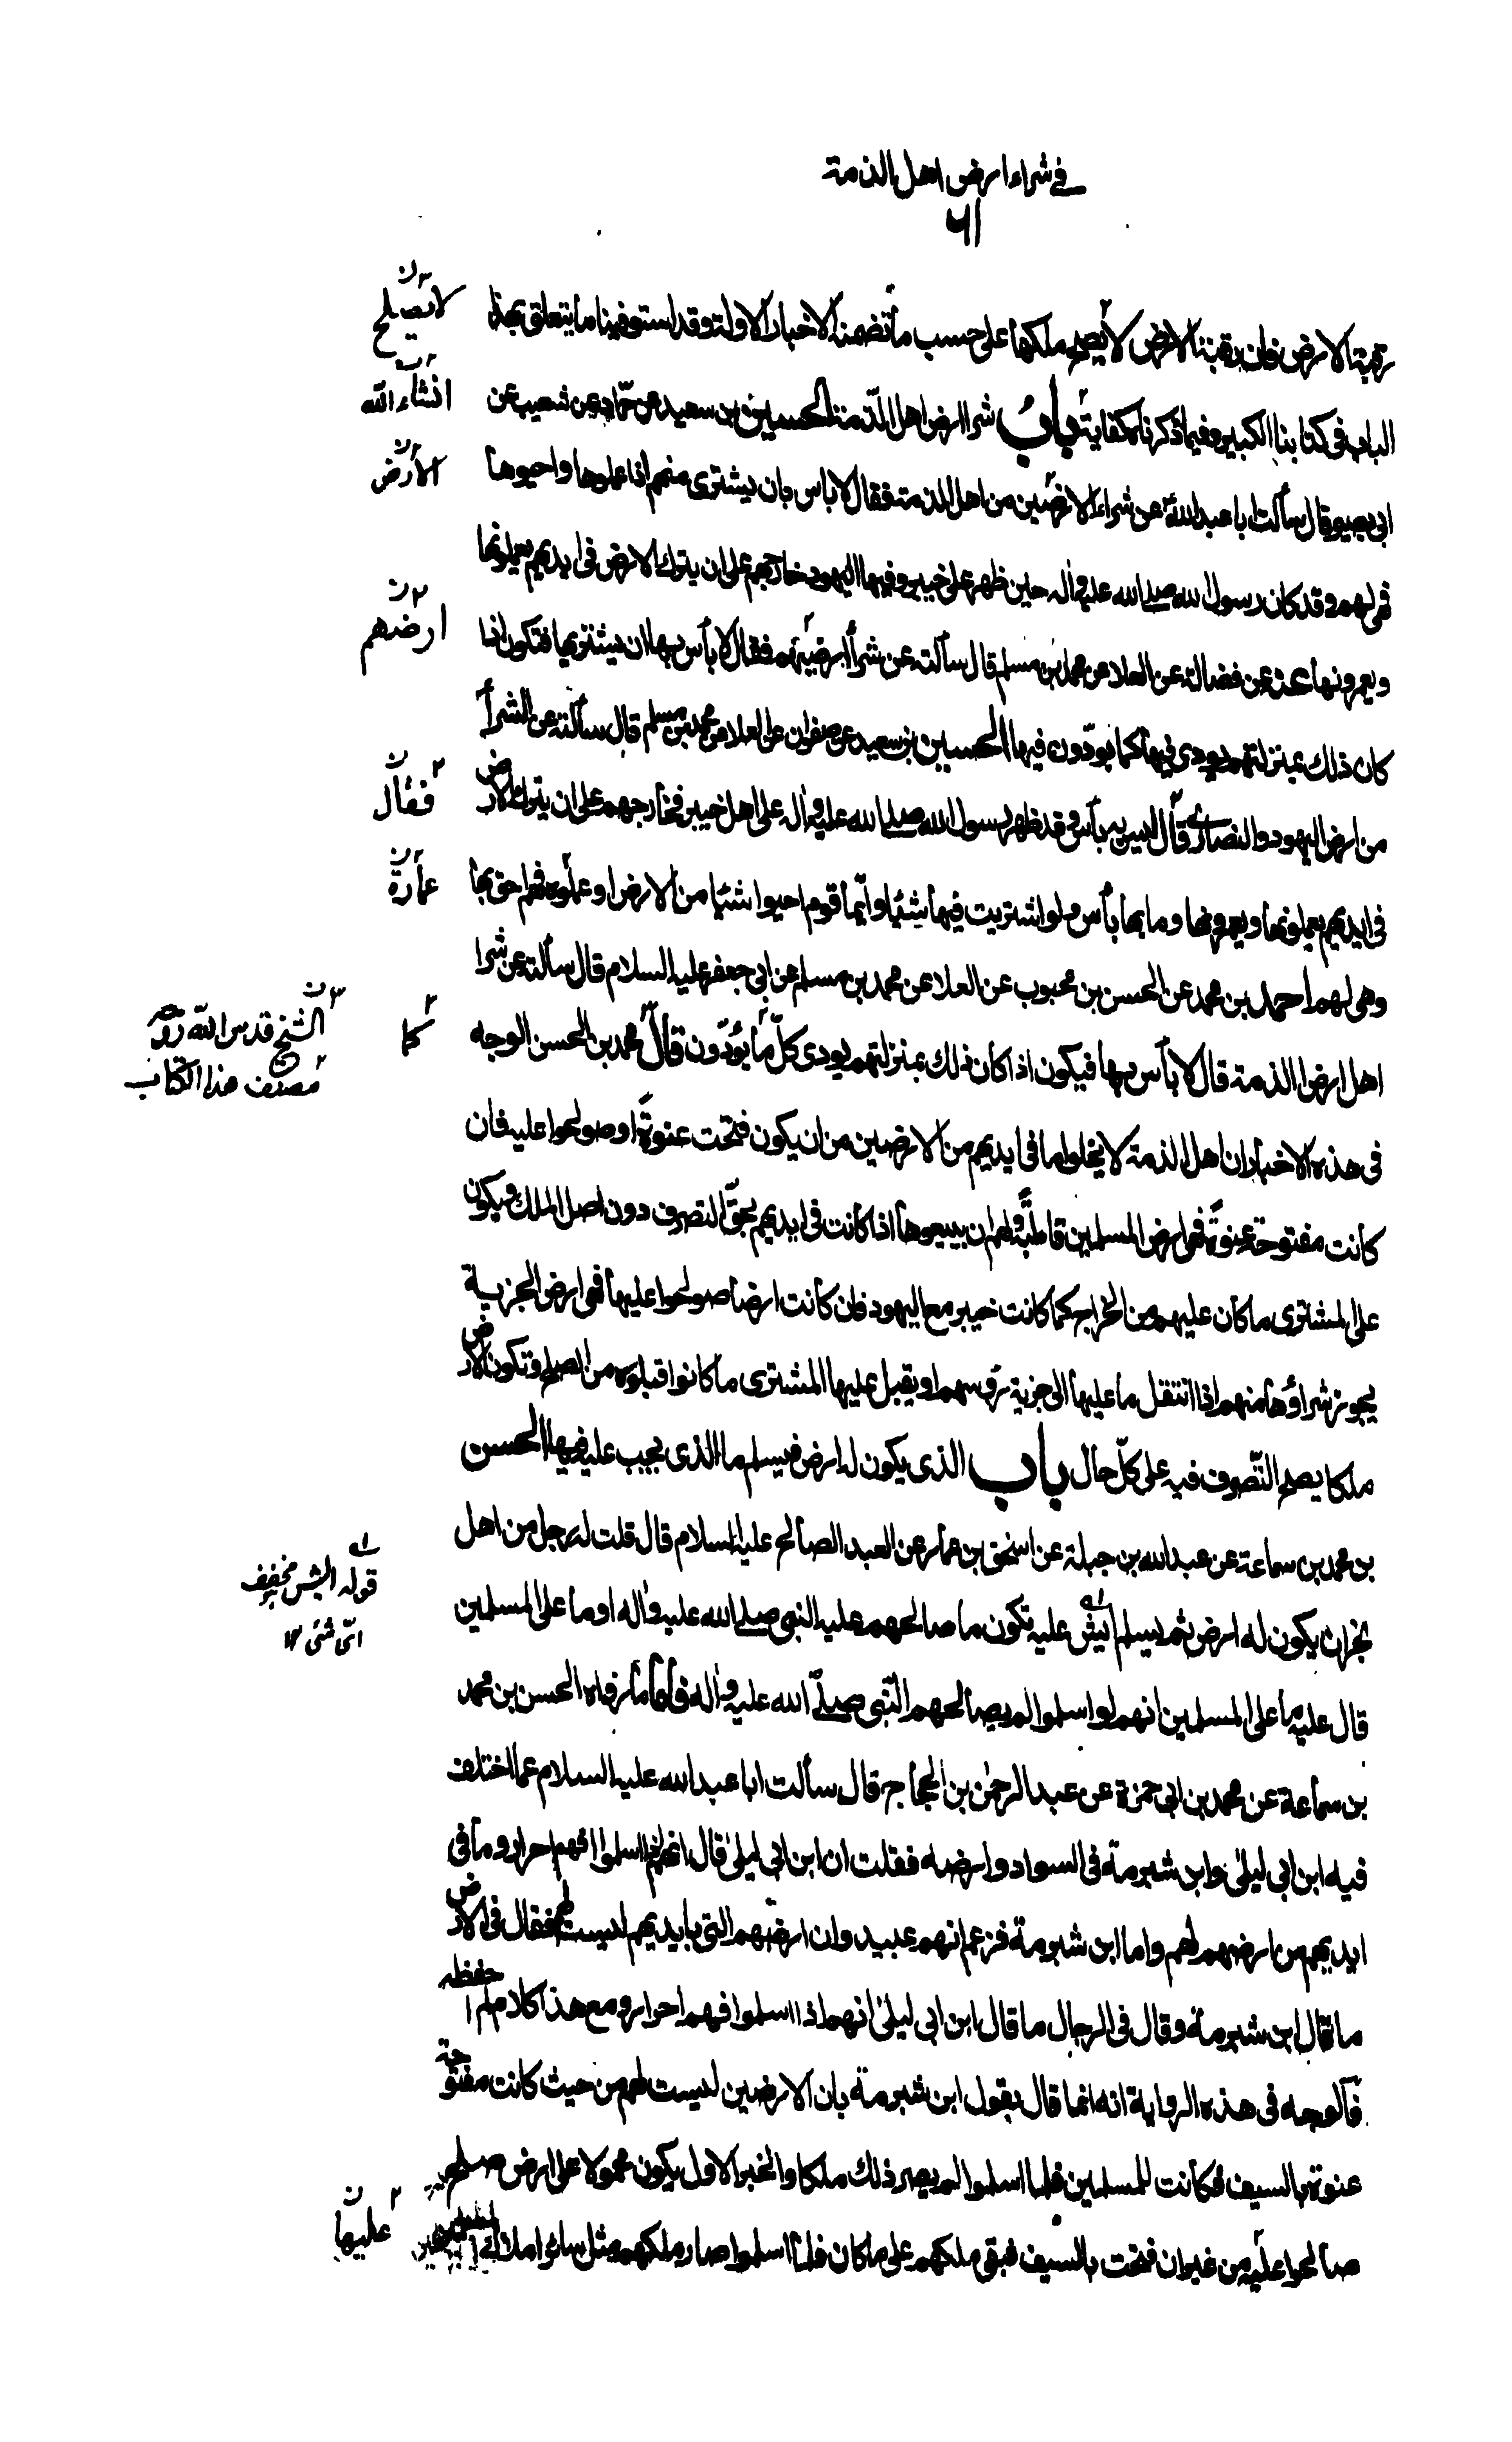 في شراء ارض اهل الذمة
٦١
رقبة الارض فان رقبة الارض لا يصح ملكها على حسب ما تضمنه الاخبار الاولة وقد استوفينا ما يتعلق بهذا
الباب في كتابنا الكبير وفيما ذكرناه كفاية باب شرا ارض اهل الذمة الحسين بن سعيد عن حماد عن شعيب عن
ابي بصير قال سألت ابا عبد الله عن شراء الارضين من اهل الذمة فقال لا باس بان يشترى منهم اذا عملوها واحيوها
فهي لهم وقد كان رسول الله صلى الله عليه واله حين ظهر على خيبر وفيها اليهود خارجهم على ان يترك الارض في ايديهم يعملونها
ويعمرونها عنه عن فضالة عن العلا عن محمد بن مسلم قال سألته عن شرا ارضيهم فقال لا بأس بها ان يشتريها فتكون اذا
كان ذلك بمنزلتهم يودي فيها كما يودّون فيها الحسين بن سعيد عن صفوان عن العلا عن محمد بن مسلم قال سألته عن الشرا
من ارض اليهود والنصارى قال ليس به بأس وقد ظهر رسول الله صلى الله عليه واله على اهل خيبر فخارجهم على ان يترك الارض
في ايديهم يعملونها ويعمرونها وما بها بأس ولو اشتريت فيها شيئا وايّما قوم احيوا شيئا من الارض او عملوه فهم احق بها
وهي لهم احمد بن محمد عن الحسن بن محبوب عن العلا عن محمد بن مسلم عن ابي جعفر عليه السلام قال سألته عن شرا
اهل ارض الذمة قال لا بأس بها فيكون اذا كان ذلك بمنزلتهم يودي كلّ ما يؤدّون قال محمد بن الحسن الوجه
في هذه الاخبار ان اهل الذمة لا يخلوا ما في ايديهم من الارضين من ان يكون فتحت عنوة او صولحوا عليه فان
كانت مفتوحة عنوة فهي ارض المسلمين قاطبة ولهم ان يبيعوها اذا كانت في ايديهم بحقّ التصرف دون اصل الملك ويكون
على المشترى ما كان عليهم من الخراج كما كانت خيبر مع اليهود فان كانت ارضا صولحوا عليها فهي ارض الجزية
يجوز شراؤها منهم اذا انتقل ما عليها الى جزية رؤسهم او يقبل عليها المشتري ما كانوا قبلوه من الصلح وتكون الارض
ملكا يصح التّصرف فيه على كلّ حال باب الذي يكون له ارض فيسلم ما الذي يجب عليه فيها الحسن
بن محمد بن سماعة عن عبد الله بن جبلة عن اسحق بن عمار عن العبد الصالح عليه السلام قال قلت له رجل من اهل
نجران يكون له ارض ثم يسلم ايش عليه تكون ما صالحهم عليه النبي صلى الله عليه واله او ما على المسلمين
قال عليه ما على المسلمين انهم لو اسلموا لم يصالحهم النّبي صلّى الله عليه واله فاما ما رواه الحسن بن محمد
بن سماعة عن محمد بن ابي حمزة عن عبد الرحمن بن الحجاج قال سألت ابا عبد الله عليه السلام عما اختلف
فيه ابن ابي ليلى وابن شبرمة في السواد وارضه فقلت ان ابن ابي ليلى قال انهم اذا اسلموا انهم احرار وما في
ايديهم من ارضهم لهم واما ابن شبرمة فزعم انهم عبيد وان ارضهم التي بايديهم ليست لهم فقال في الارض
ما قال ابن شبرمة وقال في الرجال ما قال ابن ابي ليلى انهم اذا اسلموا فهم احرار ومع هذا كلام لم احفظه
فالوجه في هذه الرواية انه انما قال بقول ابن شبرمة بان الارضين ليست لهم من حيث كانت مفتوحة
عنوة بالسيف فكانت للمسلمين فلما اسلموا لم يصر ذلك ملكا والخبر الاول يكون محمولا على ارض صلح
صالحوا عليه من غير ان فتحت بالسيف فبقي ملكهم على ما كان فلما اسلموا صار ملكهم مثل سائر املاك
لا يصلح
انشاء الله
الأرض
ارضهم
فقال
عمارة
كما
الشيخ قدس الله
مصنف هذا الكتاب
قوله ايش مخفف
ايّ شئ ١٢
عليها